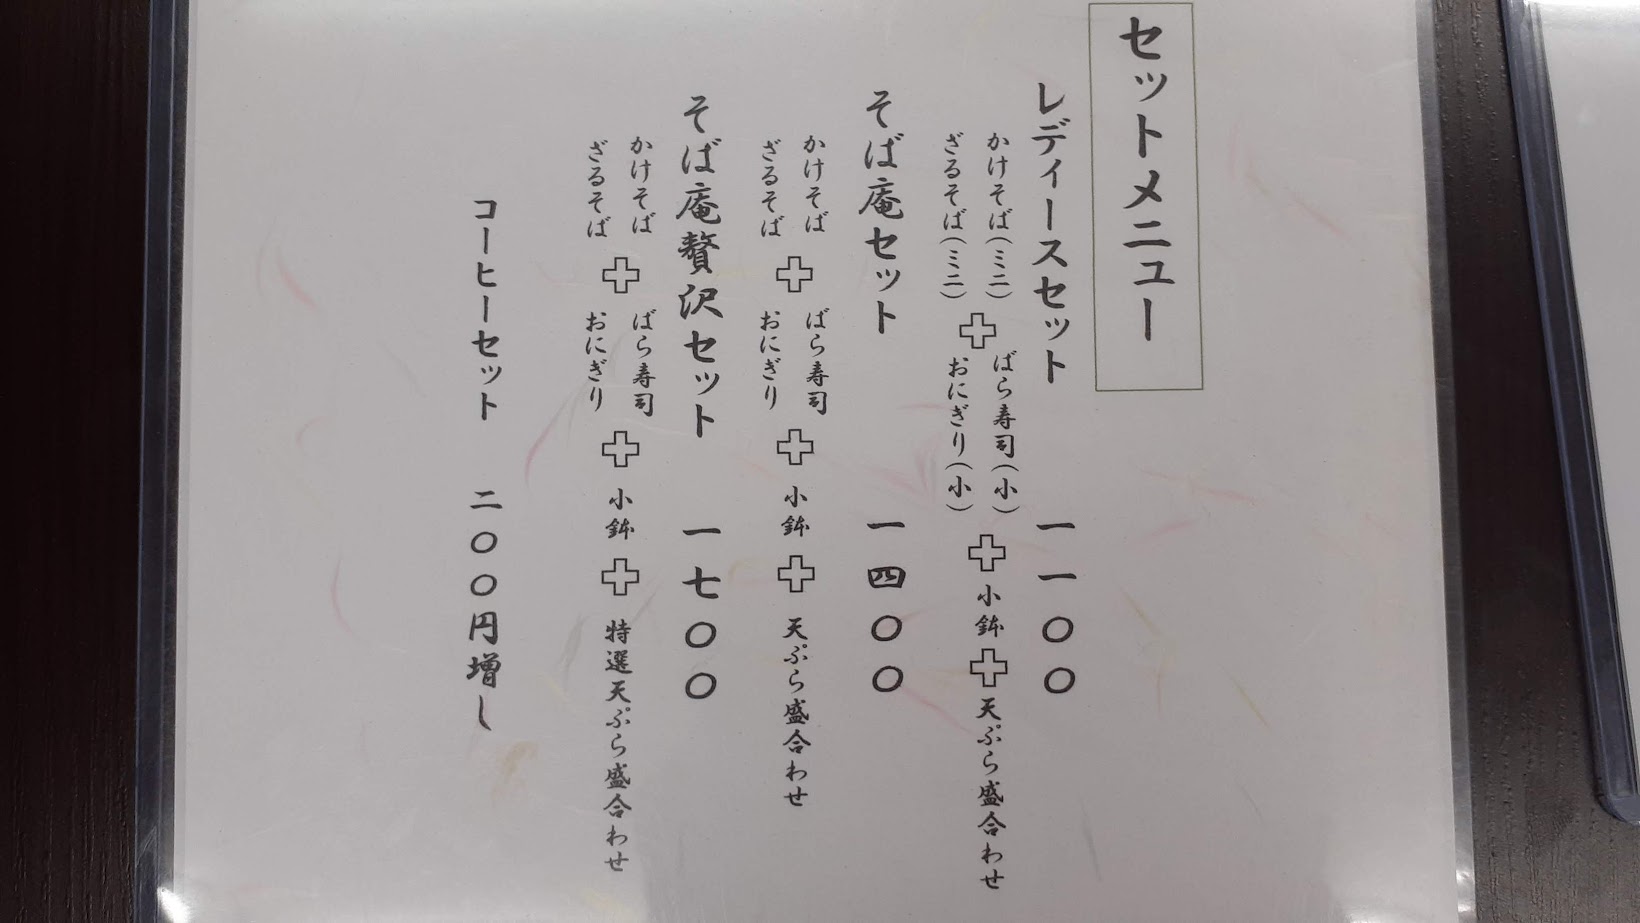 セットメニュー
レディースセット 一一〇〇
かけそば(ミニ) ばら寿司(小)
ざるそば(ミニ) おにぎり(小)
小鉢 天ぷら盛合わせ
そば庵セット 一四〇〇
かけそば ばら寿司
ざるそば おにぎり
小鉢 天ぷら盛合わせ
そば庵贅沢セット 一七〇〇
かけそば ばら寿司
ざるそば おにぎり
小鉢 特選天ぷら盛合わせ
コーヒーセット 二〇〇円増し